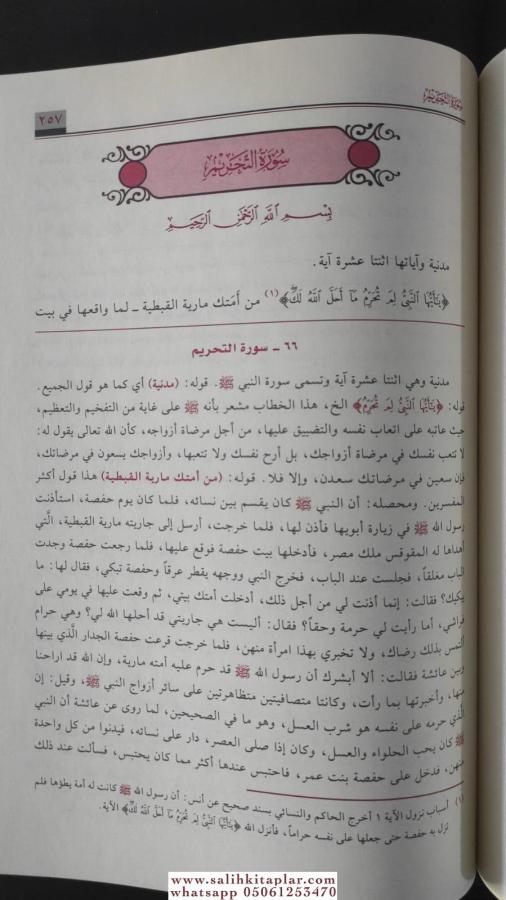 سورة التحريم
٢٥٧
سورة التحريم
بسم الله الرحمن الرحيم
مدنية وآياتها اثنتا عشرة آية.
﴿يَٰٓأَيُّهَا ٱلنَّبِىُّ لِمَ تُحَرِّمُ مَآ أَحَلَّ ٱللَّهُ لَكَ﴾(١) من أمَتك مارية القبطية ـ لما واقعها في بيت
٦٦ ـ سورة التحريم
مدنية وهي اثنتا عشرة آية وتسمى سورة النبي ﷺ. قوله: (مدنية) أي كما هو قول الجميع.
قوله: ﴿يَٰٓأَيُّهَا ٱلنَّبِىُّ لِمَ تُحَرِّمُ﴾ الخ، هذا الخطاب مشعر بأنه ﷺ على غاية من التفخيم والتعظيم،
حيث عاتبه على اتعاب نفسه والتضييق عليها، من أجل مرضاة أزواجه، كأن الله تعالى يقول له:
لا تتعب نفسك في مرضاة أزواجك، بل أرح نفسك ولا تتعبها، وأزواجك يسعون في مرضاتك،
فإن سعين في مرضاتك سعدن، وإلا فلا. قوله: (من أمتك مارية القبطية) هذا قول أكثر
المفسرين. ومحصله: أن النبي ﷺ كان يقسم بين نسائه، فلما كان يوم حفصة، استأذنت
رسول الله ﷺ في زيارة أبويها فأذن لها، فلما خرجت، أرسل إلى جاريته مارية القبطية، الَّتي
أهداها له المقوقس ملك مصر، فأدخلها بيت حفصة فوقع عليها، فلما رجعت حفصة وجدت
الباب مغلقاً، فجلست عند الباب، فخرج النبي ووجهه يقطر عرقاً وحفصة تبكي، فقال لها: ما
يبكيك؟ فقالت: إنما أذنت لي من أجل ذلك، أدخلت أمتك بيتي، ثم وقعت عليها في يومي على
فراشي، أما رأيت لي حرمة وحقاً؟ فقال: أليست هي جاريتي قد أحلها الله لي؟ وهي حرام
ألتمس بذلك رضاك، ولا تخبري بهذا امرأة منهن، فلما خرجت قرعت حفصة الجدار الَّذي بينها
وبين عائشة فقالت: ألا أبشرك أن رسول الله ﷺ قد حرم عليه أمته مارية، وإن الله قد اراحنا
منها، وأخبرتها بما رأت، وكانتا متصافيتين متظاهرتين على سائر أزواج النبي ﷺ، وقيل: إن
الَّذي حرمه على نفسه هو شرب العسل، وهو ما في الصحيحين، لما روى عن عائشة أن النبي
ﷺ كان يحب الحلواء والعسل، وكان إذا صلى العصر، دار على نسائه، فيدنوا من كل واحدة
منهن، فدخل على حفصة بنت عمر، فاحتبس عندها أكثر مما كان يحتبس، فسألت عند ذلك
(١) أسباب نزول الآية ١ أخرج الحاكم والنسائي بسند صحيح عن أنس: أن رسول الله ﷺ كانت له أمة يطؤها فلم
تزل به حفصة حتى جعلها على نفسه حراماً، فأنزل الله ﴿يَٰٓأَيُّهَا ٱلنَّبِىُّ لِمَ تُحَرِّمُ مَآ أَحَلَّ ٱللَّهُ لَكَ﴾ الآية.
www.salihkitaplar.com
whatsapp 05061253470